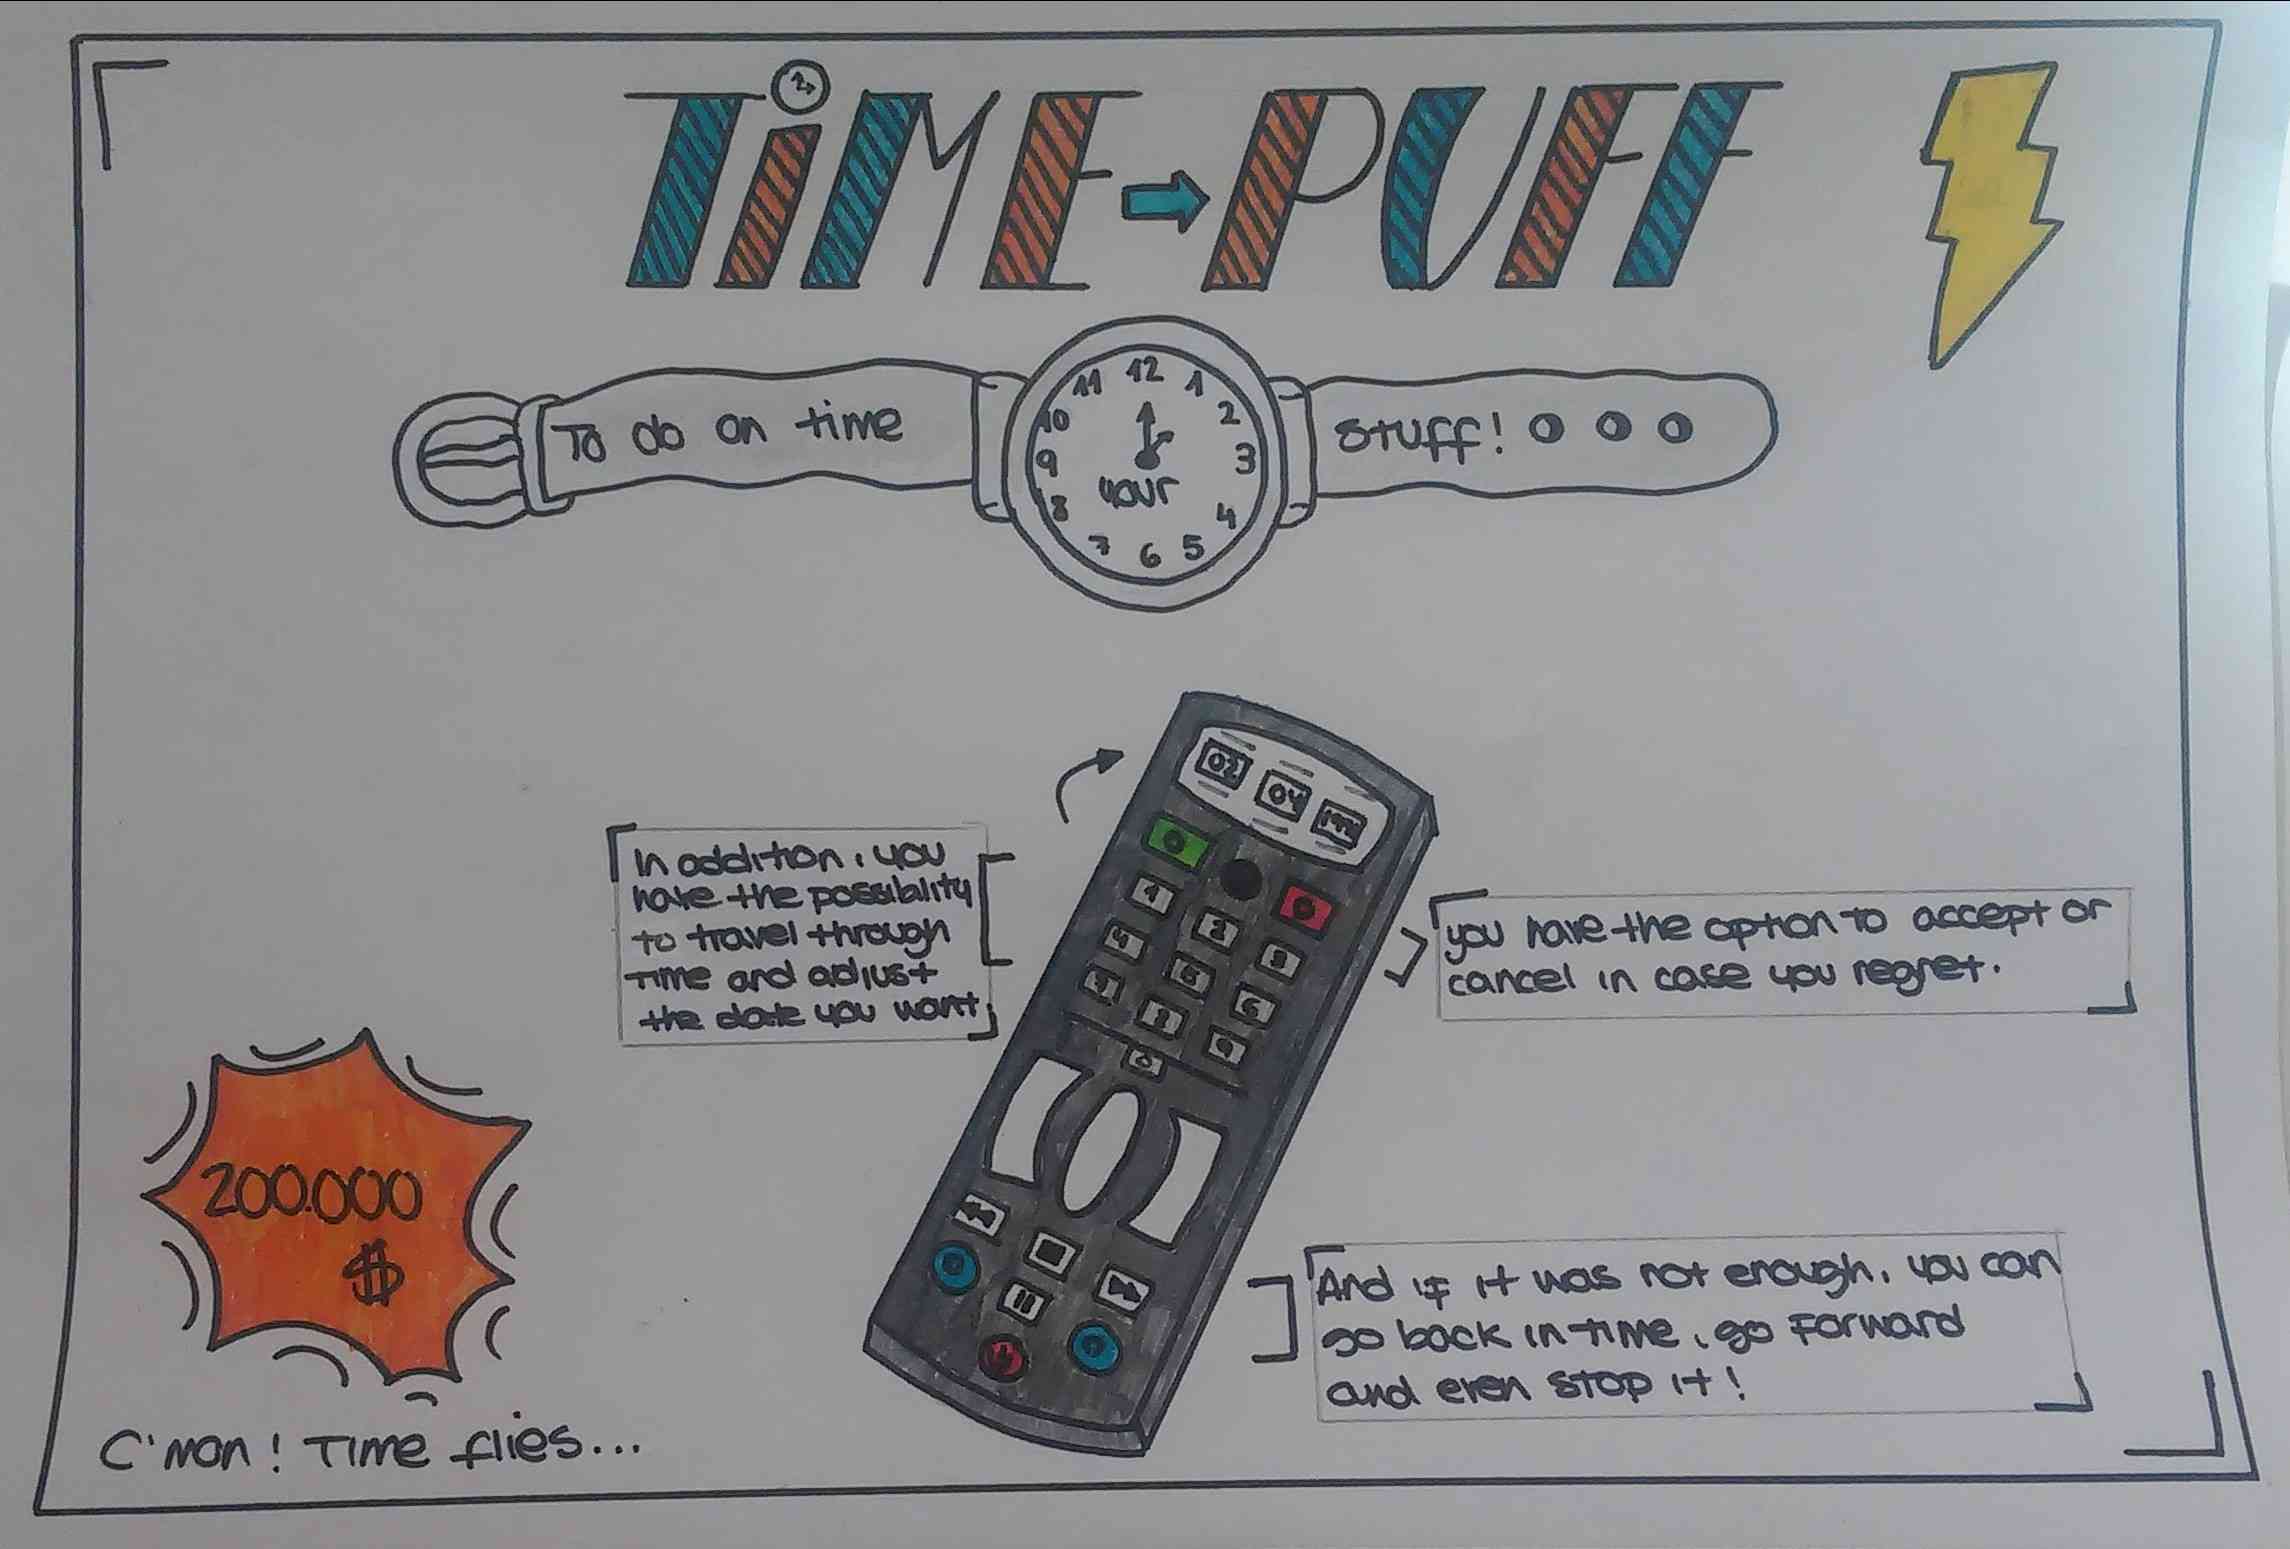 TiME PUFF
To do on time your stuff!
12
1
2
3
4
5
6
7
8
9
10
11
02 04
1
2
3
4
5
6
7
8
9
0
In addition, you
have the possibility
to travel through
time and adjust
the date you want
you have the option to accept or
cancel in case you regret.
And if it was not enough, you can
go back in time, go forward
and even stop it!
200.000
$
C'mon! Time flies...